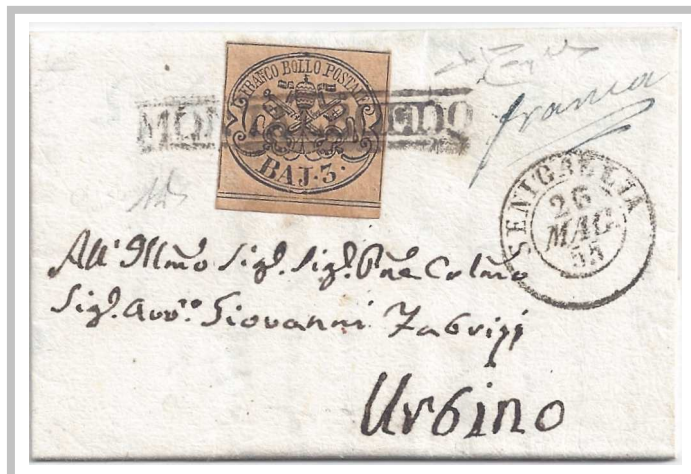 FRANCO BOLLO POSTALE
BAJ. 3.
franca
SENIGALLIA
26
MAG.
55
All' Illmo Sigr. Sigr. Pne Colmo
Sigr. Avvo. Giovanni Fabrizj
Urbino